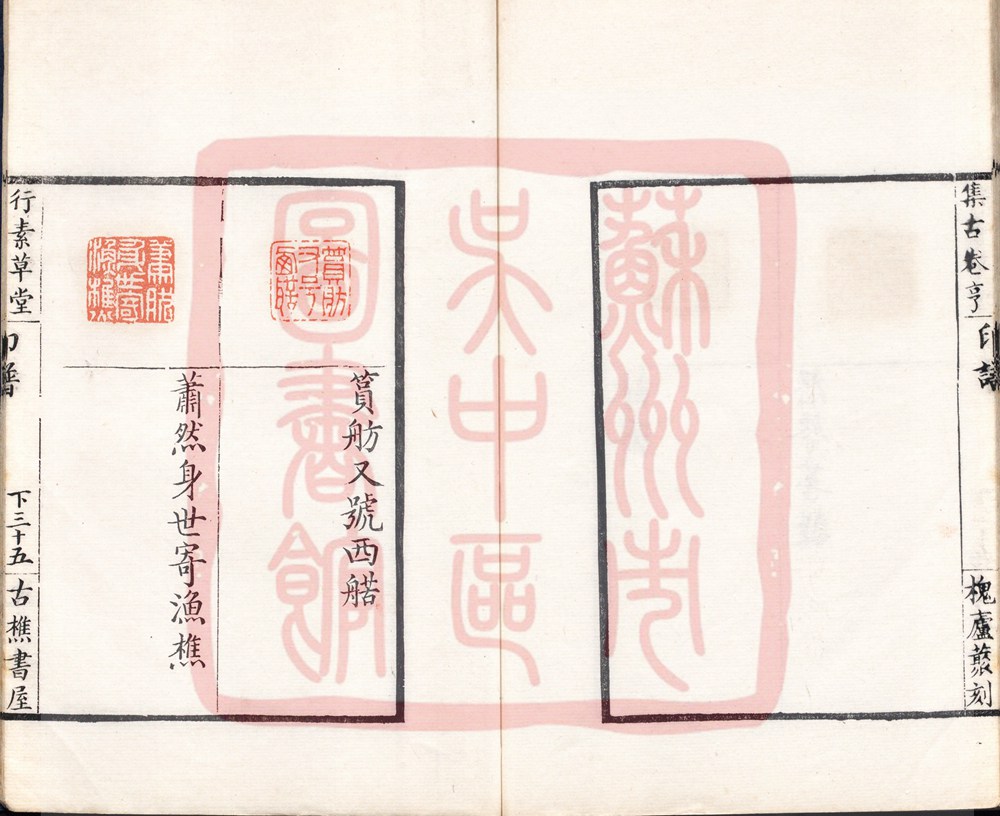 集古卷亨
印譜
槐廬篆刻
蘇州市
吳中區
圖書館
篔舫又號西
蕭然身世寄漁樵
行素草堂
印譜
下三十五
古樵書屋